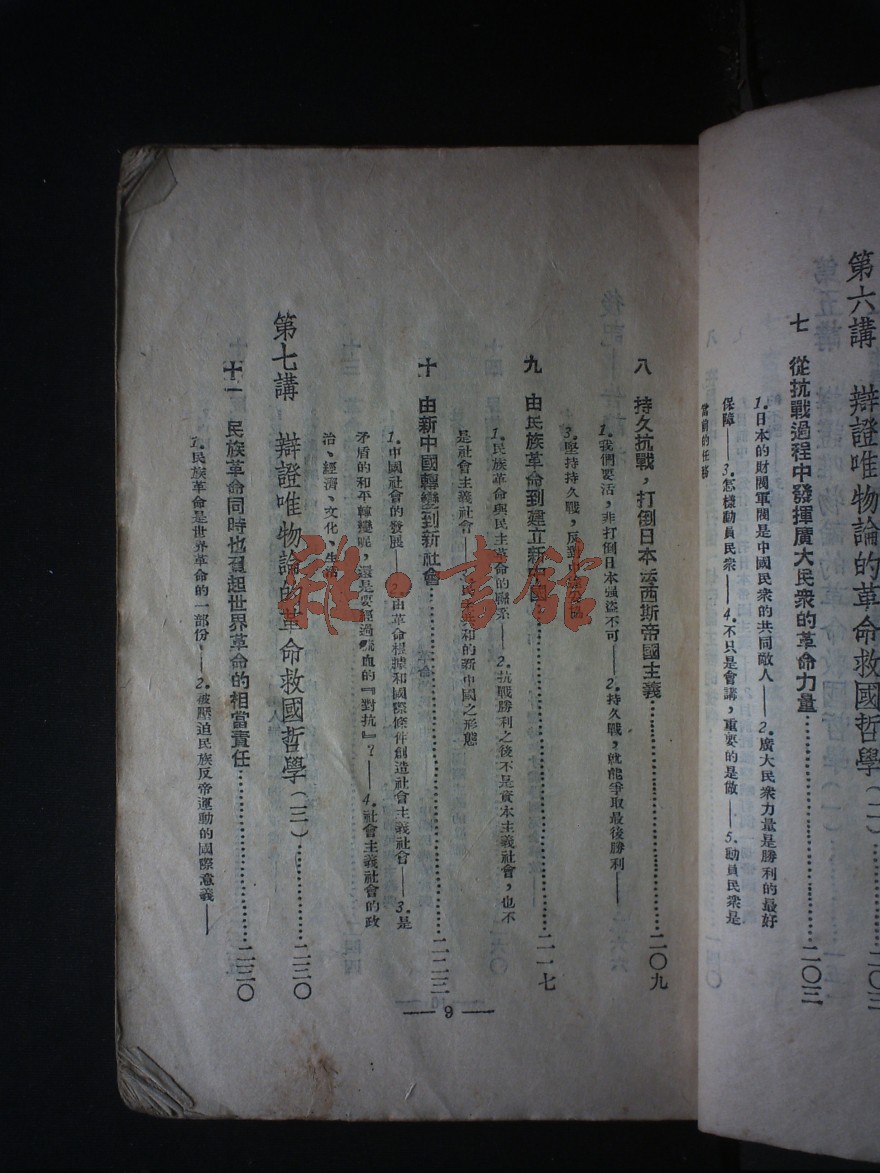 第六講　辯證唯物論的革命救國哲學（二）……二〇三
七　從抗戰過程中發揮廣大民衆的革命力量……二〇三
1.日本的財閥軍閥是中國民衆的共同敵人——2.廣大民衆力量是勝利的最好
保障——3.怎樣動員民衆——4.不只是會講，重要的是做——5.動員民衆是
當前的任務
八　持久抗戰，打倒日本法西斯帝國主義……二〇九
1.我們要活，非打倒日本強盜不可——2.持久戰，就能爭取最後勝利——
3.堅持持久戰，反對
九　由民族革命到建立新中國……二一七
1.民族革命與民主革命的聯系——2.抗戰勝利之後不是資本主義社會，也不
是社會主義社會——民主共和的新中國之形態
十　由新中國轉變到新社會……二二三
1.中國社會的發展——2.由革命根據和國際條件創造社會主義社會——3.是
矛盾的和平轉變呢，還是要經過流血的『對抗』？——4.社會主義社會的政
治、經濟、文化、生活
第七講　辯證唯物論的革命救國哲學（三）……二三〇
十一　民族革命同時也負起世界革命的相當責任……二三〇
1.民族革命是世界革命的一部份——2.被壓迫民族反帝運動的國際意義——
— 9 —
雜·書館